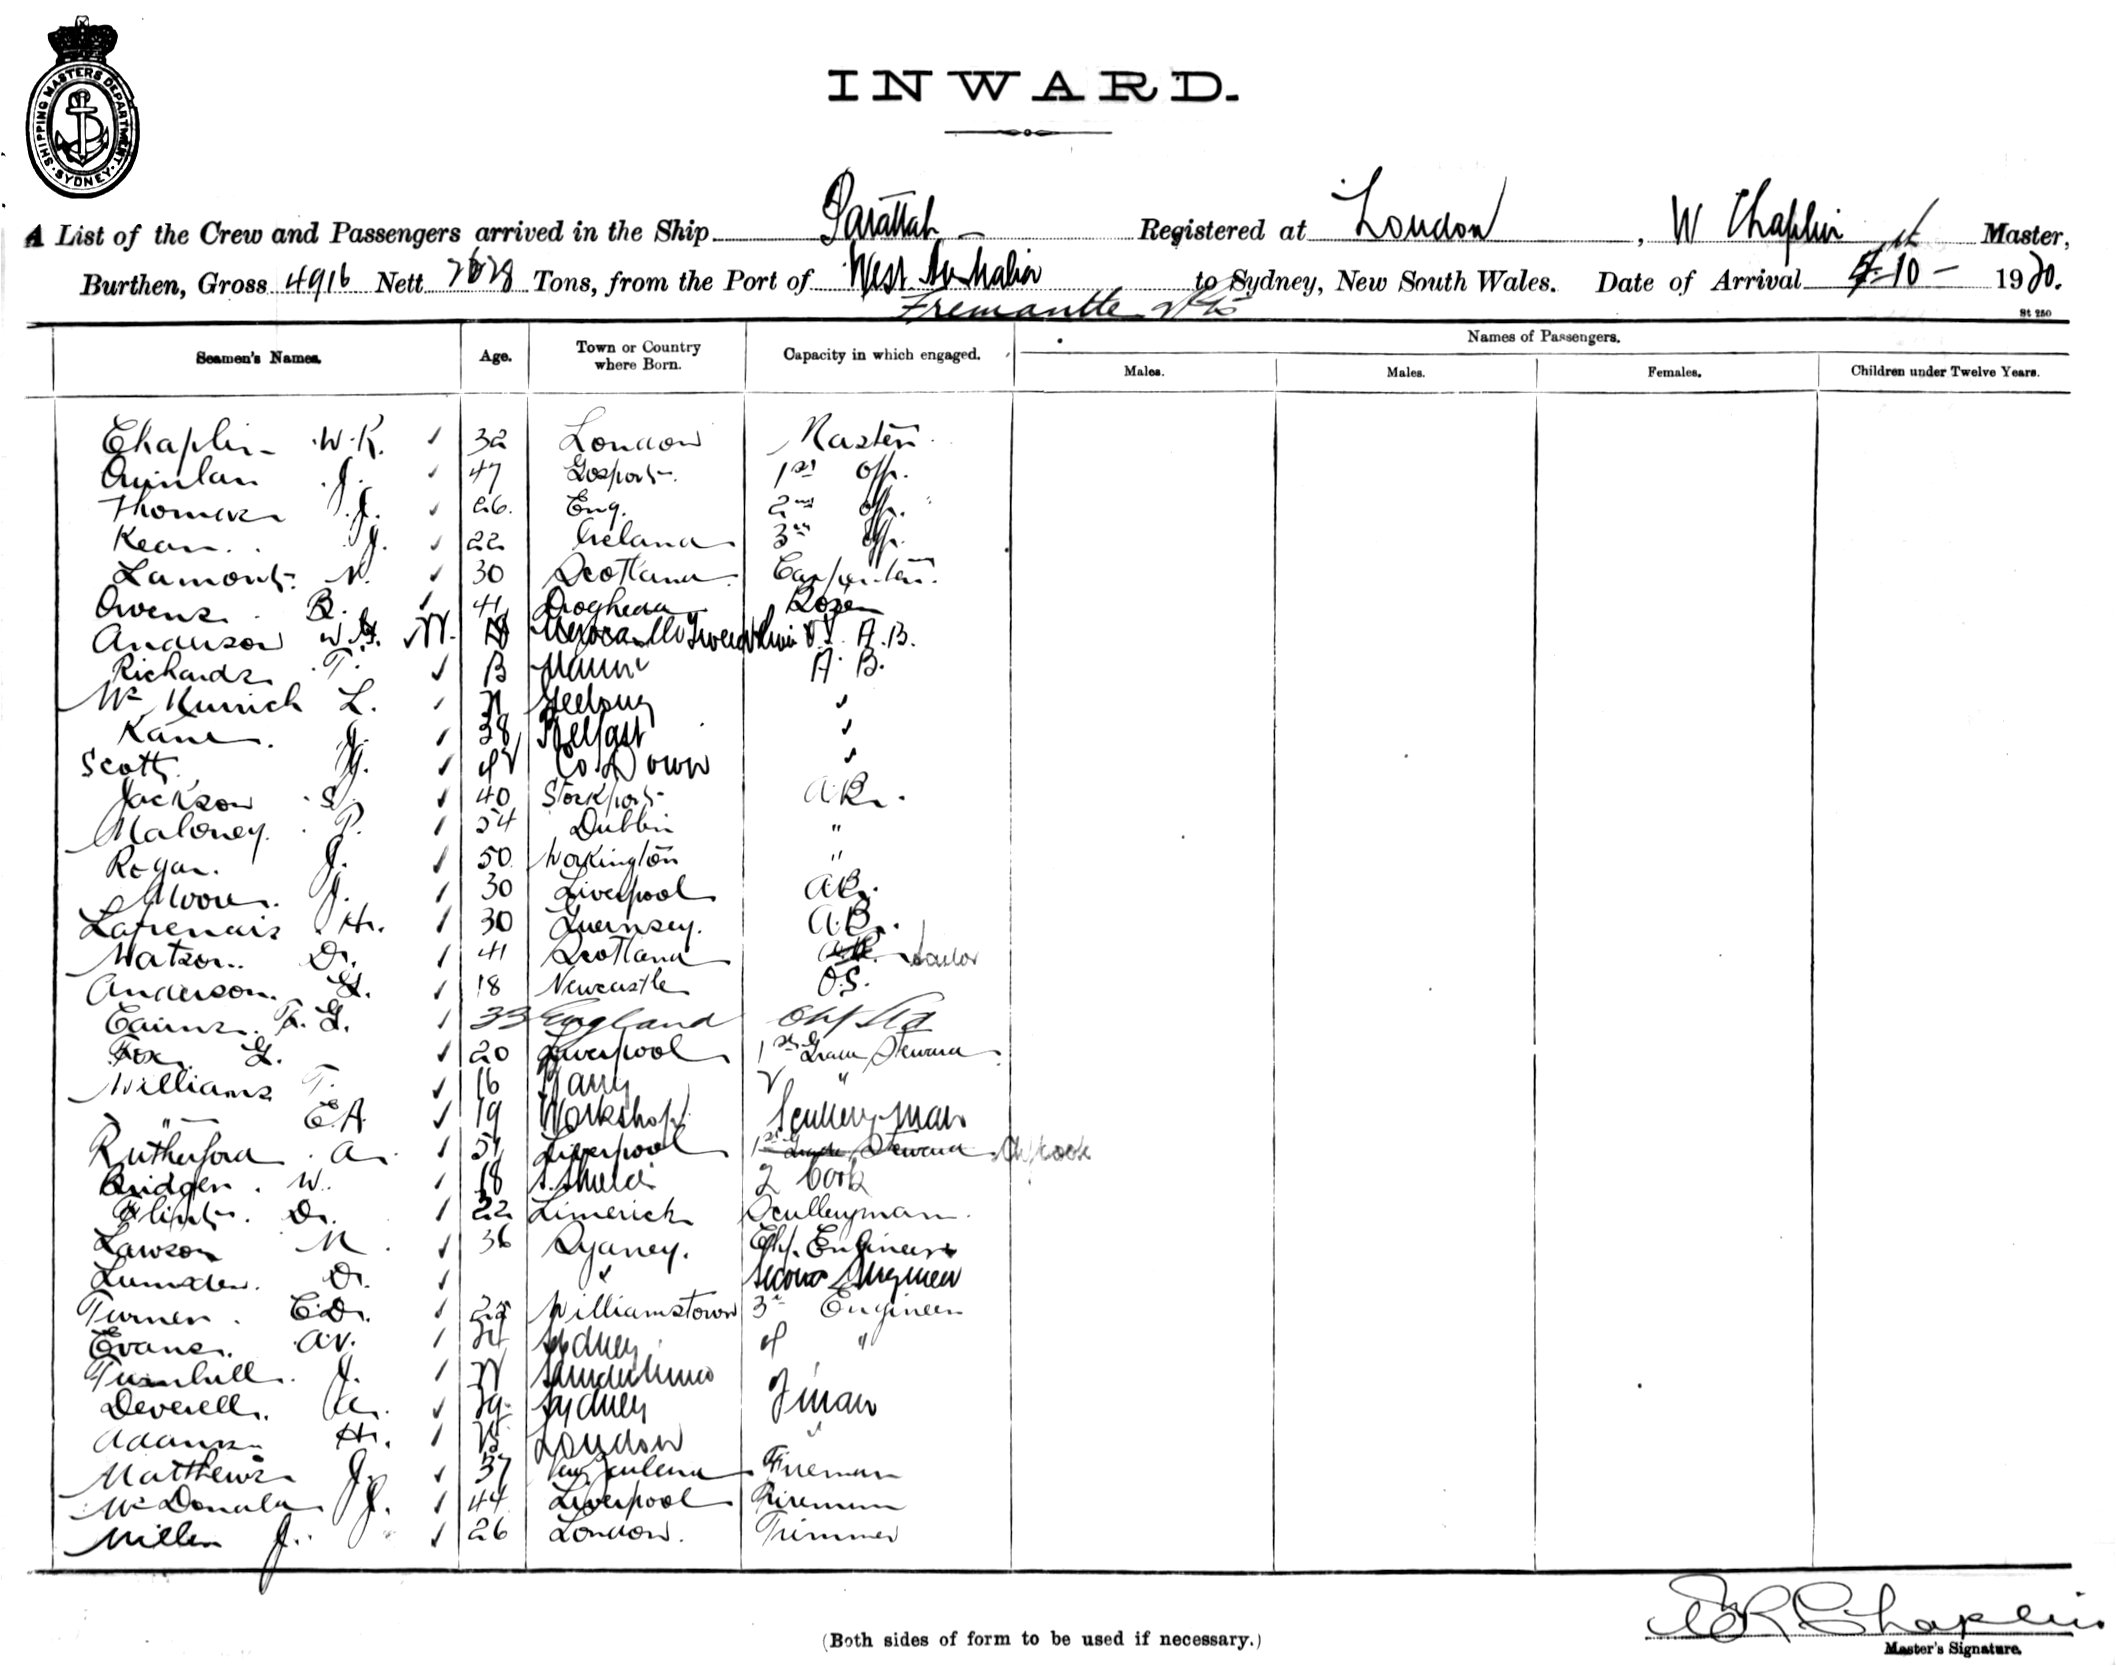 SHIPPING MASTERS DEPARTMENT. SYDNEY.
INWARD.
A List of the Crew and Passengers arrived in the Ship Parattah Registered at London, W Chaplin Master,
Burthen, Gross 4916 Nett Tons, from the Port of West Australia to Sydney, New South Wales. Date of Arrival 10 - 1920.
Fremantle
St 250
Seamen's Names. Age. Town or Country where Born. Capacity in which engaged. Names of Passengers.
Males. Males. Females. Children under Twelve Years.
Chaplin W.K. 32 London Master
Quinlan J. 47 Gosport 1st Off.
Thomas J. 26 Eng. 2nd Off.
Kean J. 22 Ireland 3rd Off.
Lamont N. 30 Scotland Carpenter
Owens R. 41 Drogheda Bosen
Anderson W. A.B.
Richards T. A.B.
L. Geelong
Kane J. 38 Belfast
Scott J. Co Down
Jackson S. 40 Stockport A.B.
Maloney P. 54 Dublin "
Regan J. 50 Workington "
Moore J. 30 Liverpool A.B.
Lafrenais H. 30 Guernsey. A.B.
Watson D. 41 Scotland Sailor
Anderson G. 18 Newcastle O.S.
Cairns F. G. 33 England Chf Std
Fox G. 20 Liverpool 1st Grade Steward
Williams T. 16 Barry 2 "
" E.A. 19 Workshop Scullery man
Rutherford A. 51 Liverpool 1st Grade Steward Ch/Cook
Bridgen W. 18 S. Shields 2 Cook
Flint D. 22 Limerick Sculleyman
Lawson N. 36 Sydney. Chf. Engineer
Lumsden D. Second Engineer
Turner C.D. Williamstown 3rd Engineer
Evans A.V. Sydney 4 "
Turnbull J. Sunderland
Deverell A. Sydney Fman
Adams H. London
Matthews J. 37 Fireman
McDonald J. 44 Liverpool Fireman
Miller J. 26 London. Trimmer
(Both sides of form to be used if necessary.)
W K Chaplin
Master's Signature.